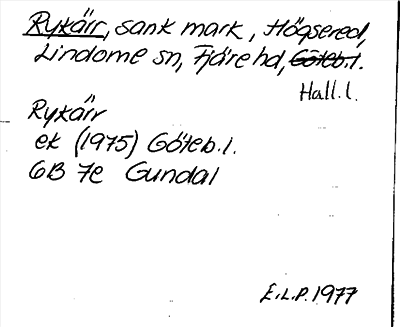 Rykärr, sank mark, Högsered,
Lindome sn, Fjäre hd, Göteb.l.
Hall.l.
Rykärr
ek (1975) Göteb.l.
6B 7e Gundal
E.L.P. 1977